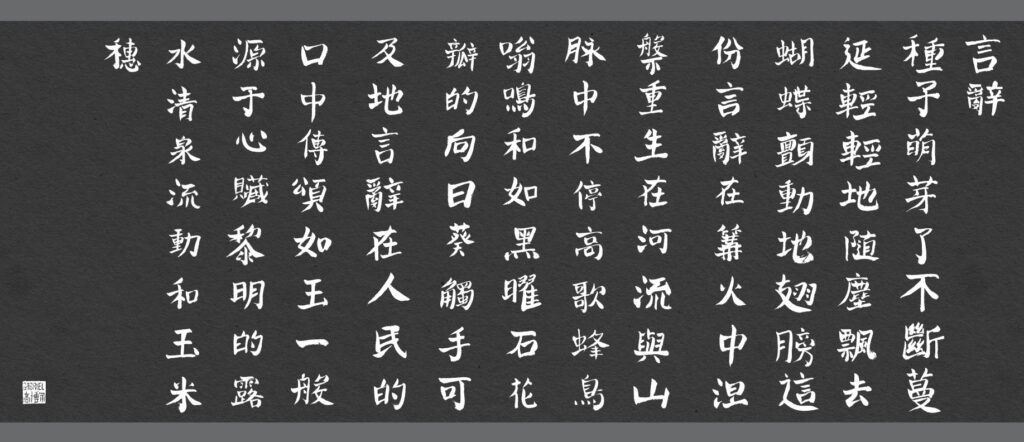 言辭
種子萌芽了不斷蔓
延輕輕地随塵飄去
蝴蝶顫動地翅膀這
份言辭在篝火中涅
槃重生在河流與山
脉中不停高歌蜂鳥
嗡鳴和如黑曜石花
瓣的向日葵觸手可
及地言辭在人民的
口中傳頌如玉一般
源于心臟黎明的露
水清泉流動和玉米
穗